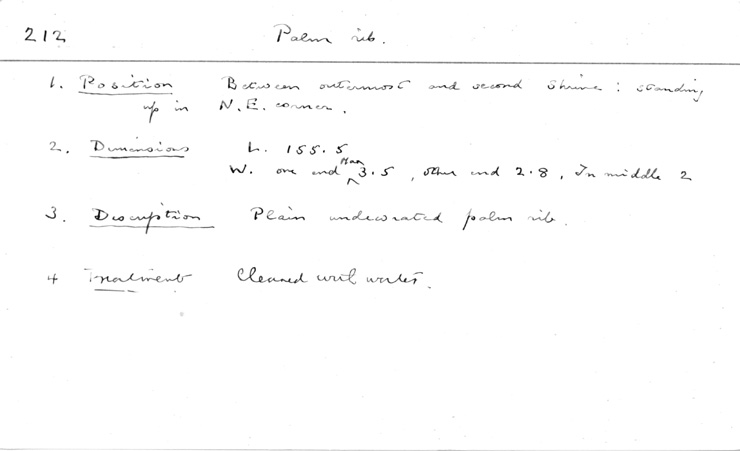 212 Palm rib.
1. Position Between outermost and second shrine : standing
up in N.E. corner.
2. Dimensions L. 155.5
W. one end Max 3.5, other end 2.8, In middle 2
3. Description Plain undecorated palm rib.
4 Treatment Cleaned with water.